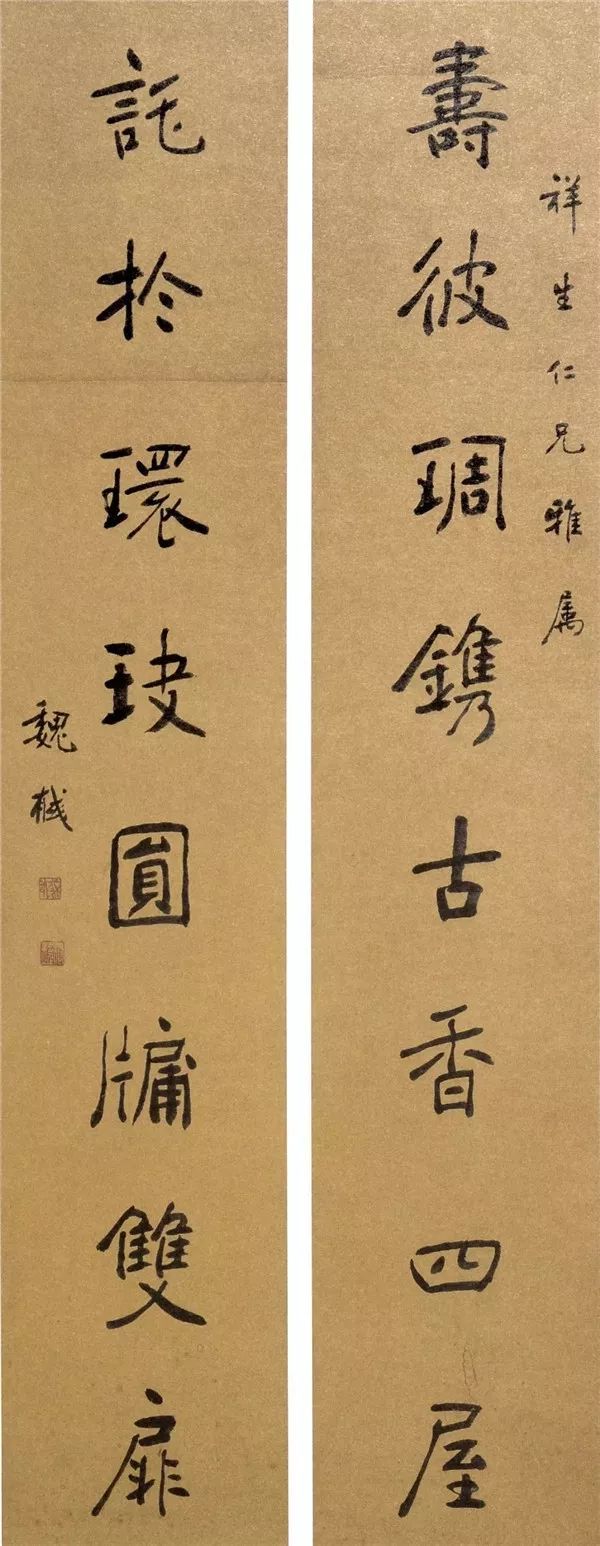 祥生仁兄雅属
壽彼琱鐫古香四屋
託於環玦圓牗雙扉
魏